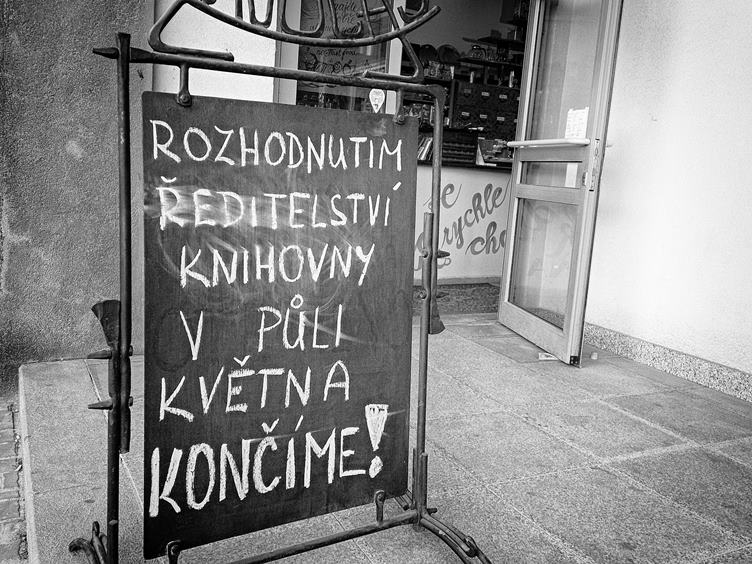 ROZHODNUTIM
ŘEDITELSTVÍ
KNIHOVNY
V PŮLI
KVĚTNA
KONČÍME!
se
rychle